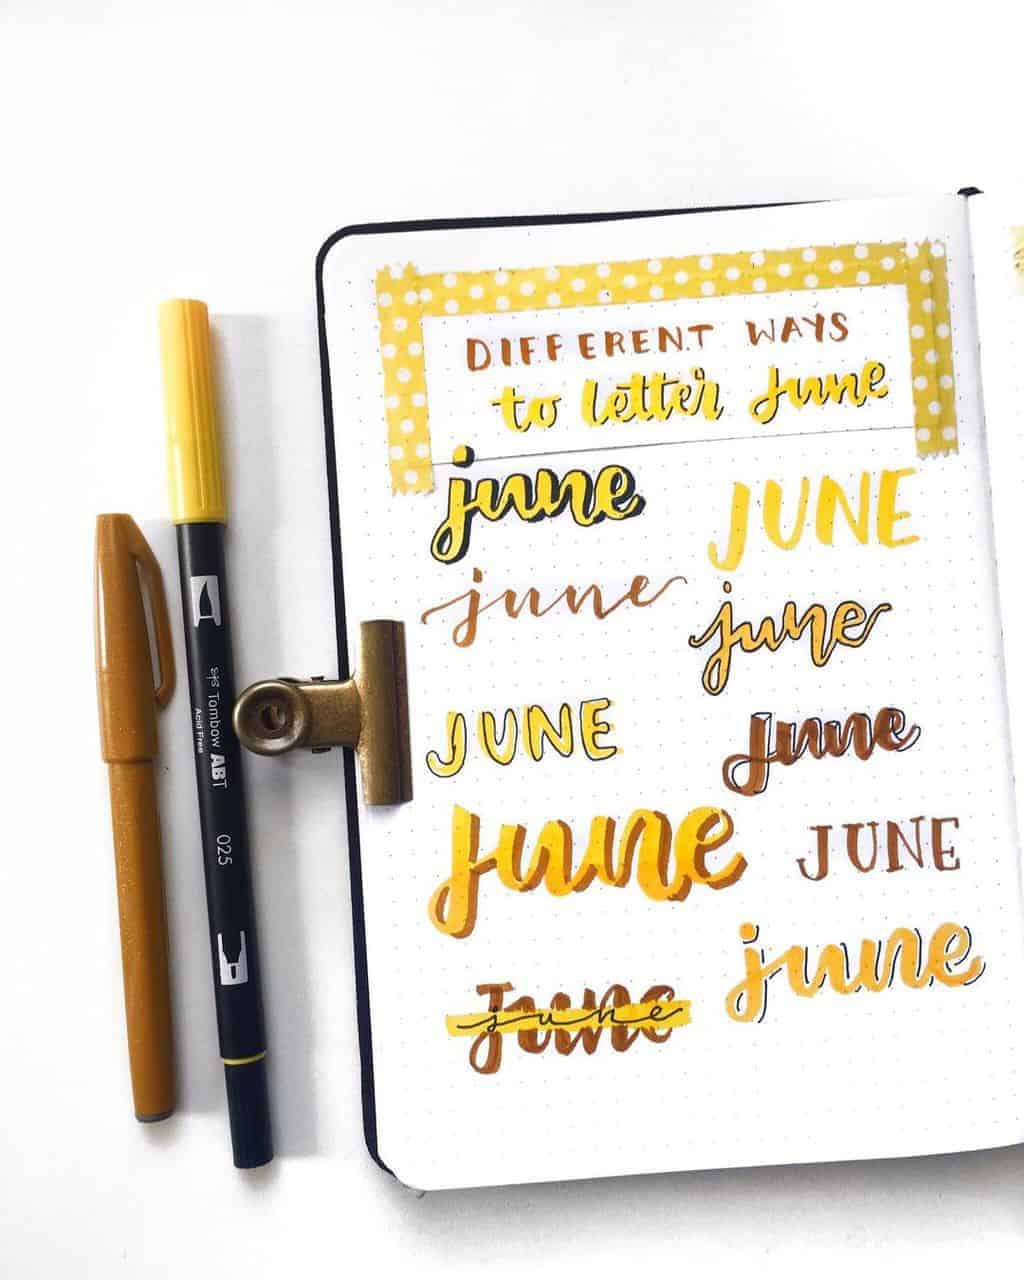 DIFFERENT WAYS
to letter June
june
JUNE
june
june
JUNE
June
June
JUNE
June
june
june
Tombow ABT
Acid Free
025